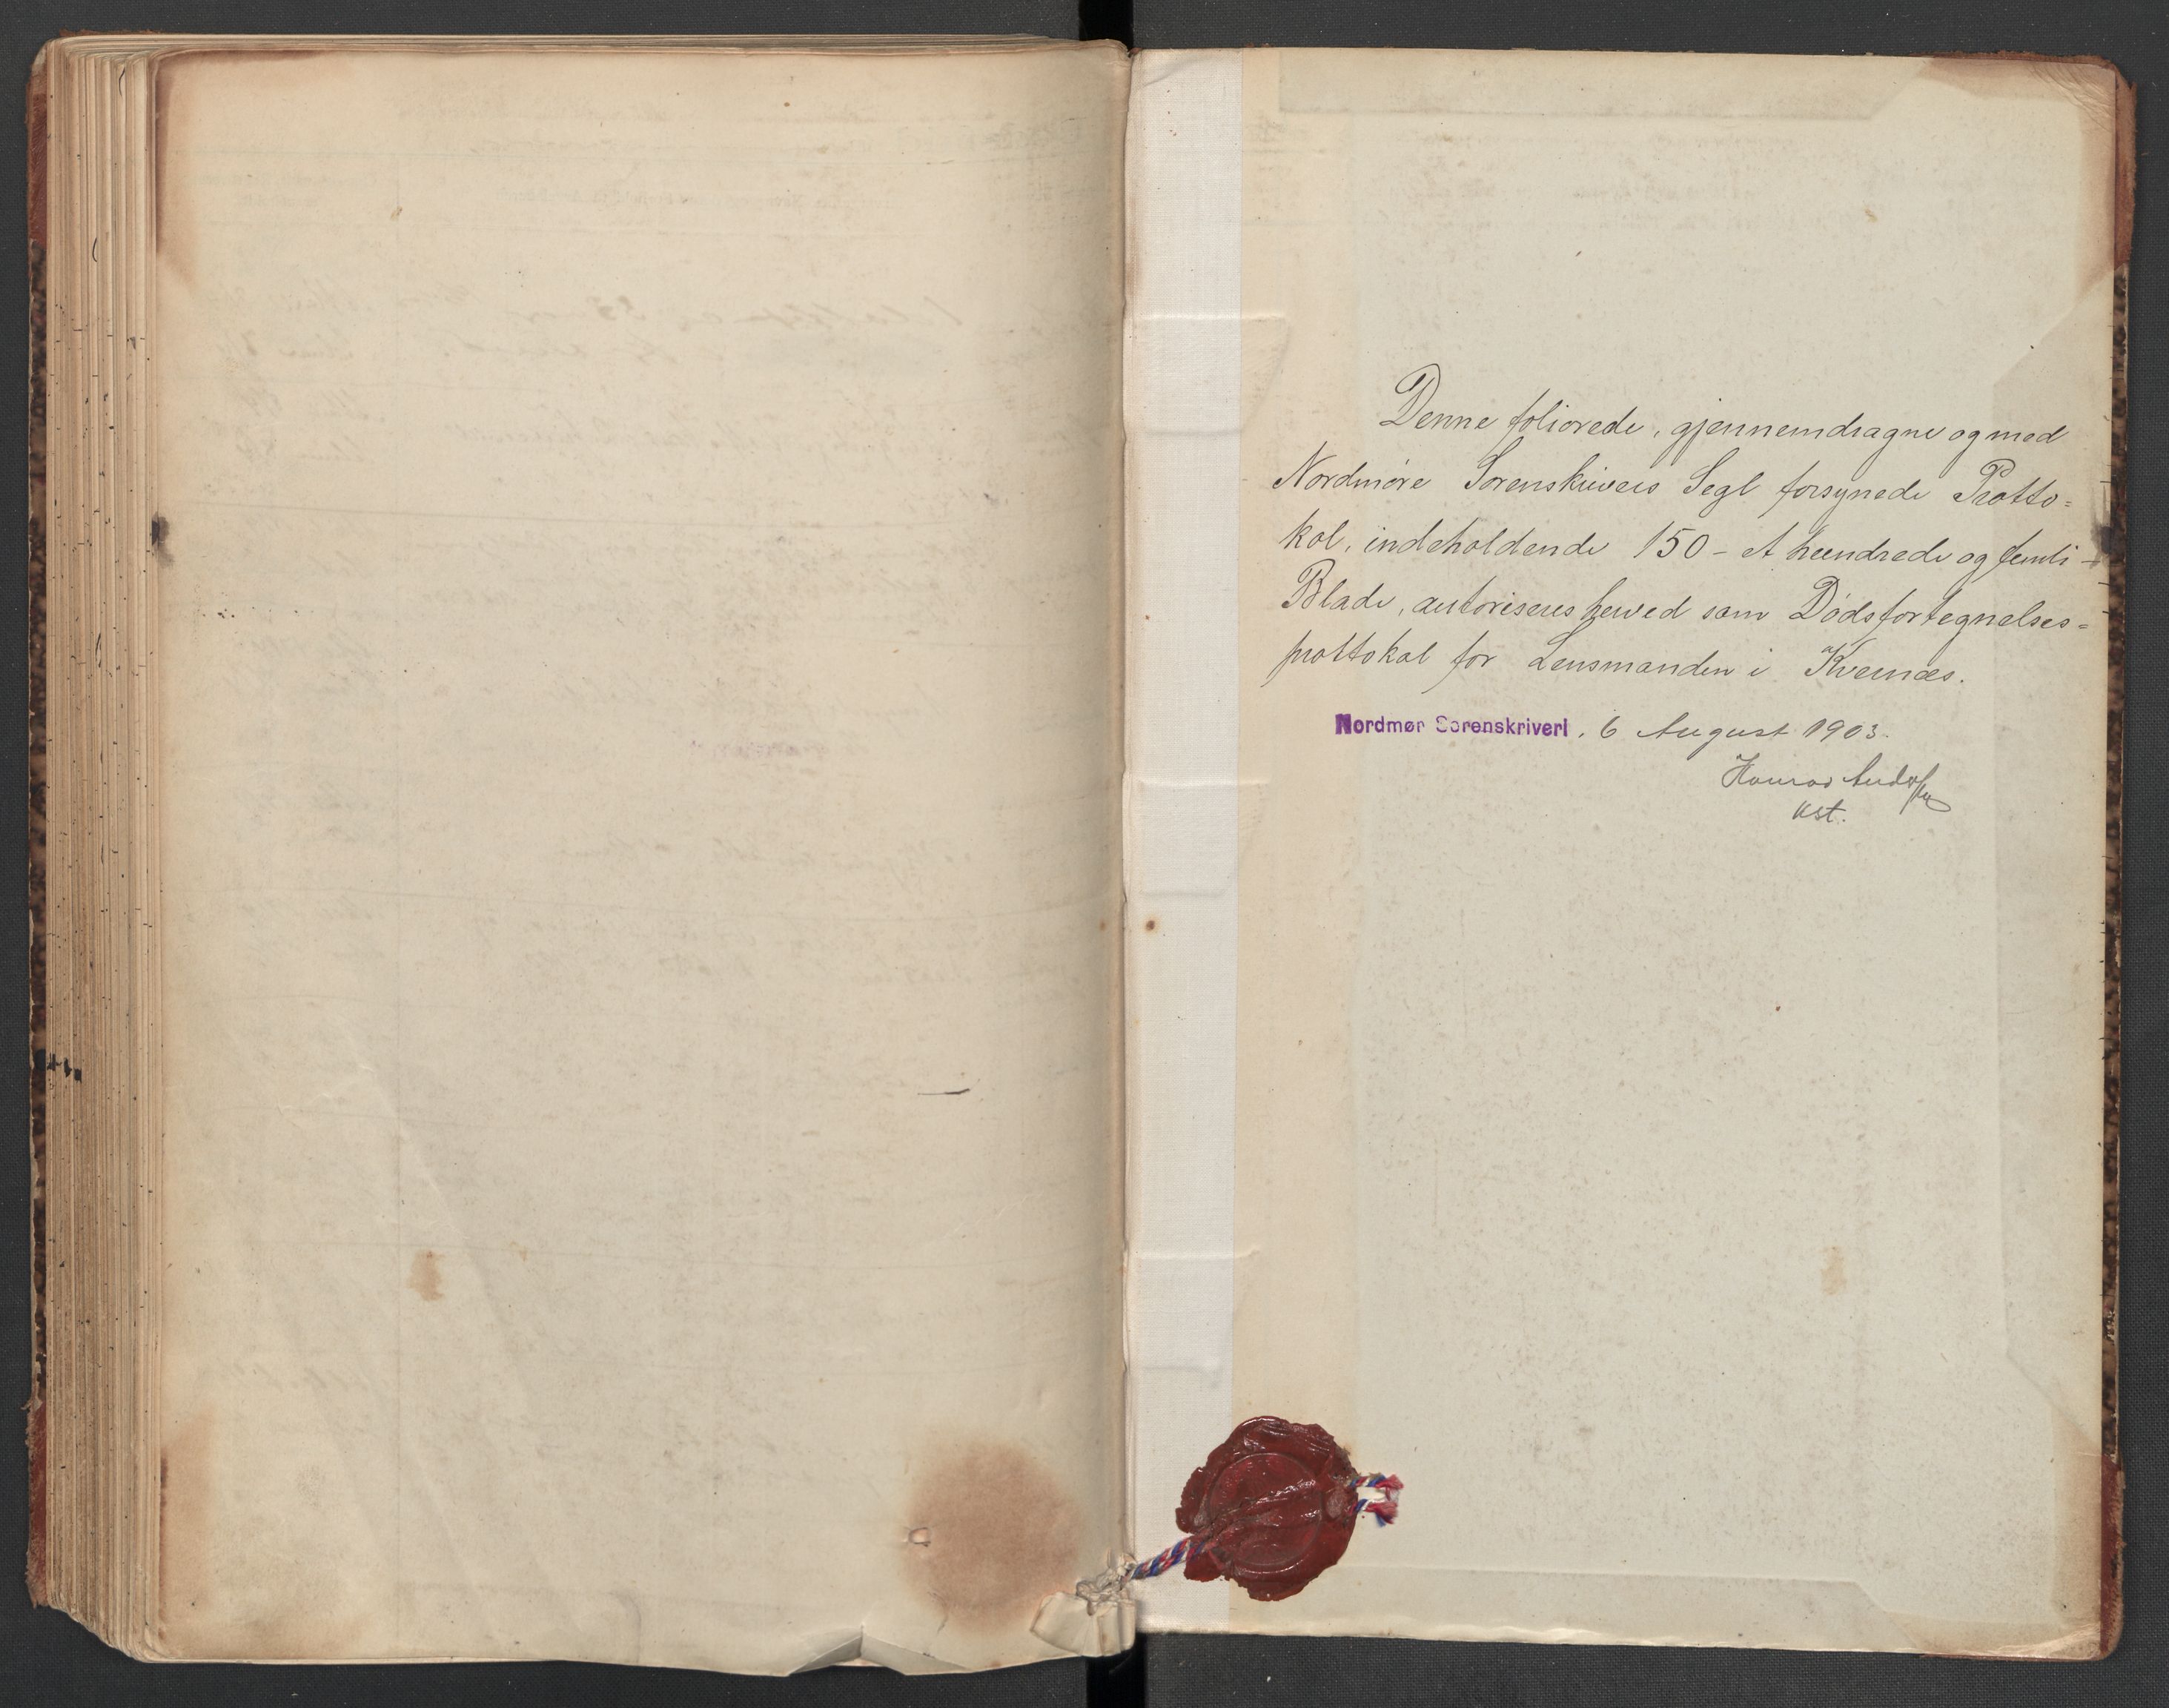 Denne foliorede, gjennemdragne og med
Nordmøre Sorenskrivers Segl forsynede Protto=
kol, indeholdende 150 - et hundrede og femti -
Blade, autoriseres herved som Dødsfortegnelses=
prottokol for Lensmanden i Kvernæs.
Nordmør Sorenskriveri, 6 August 1903.
Konrad
kst.